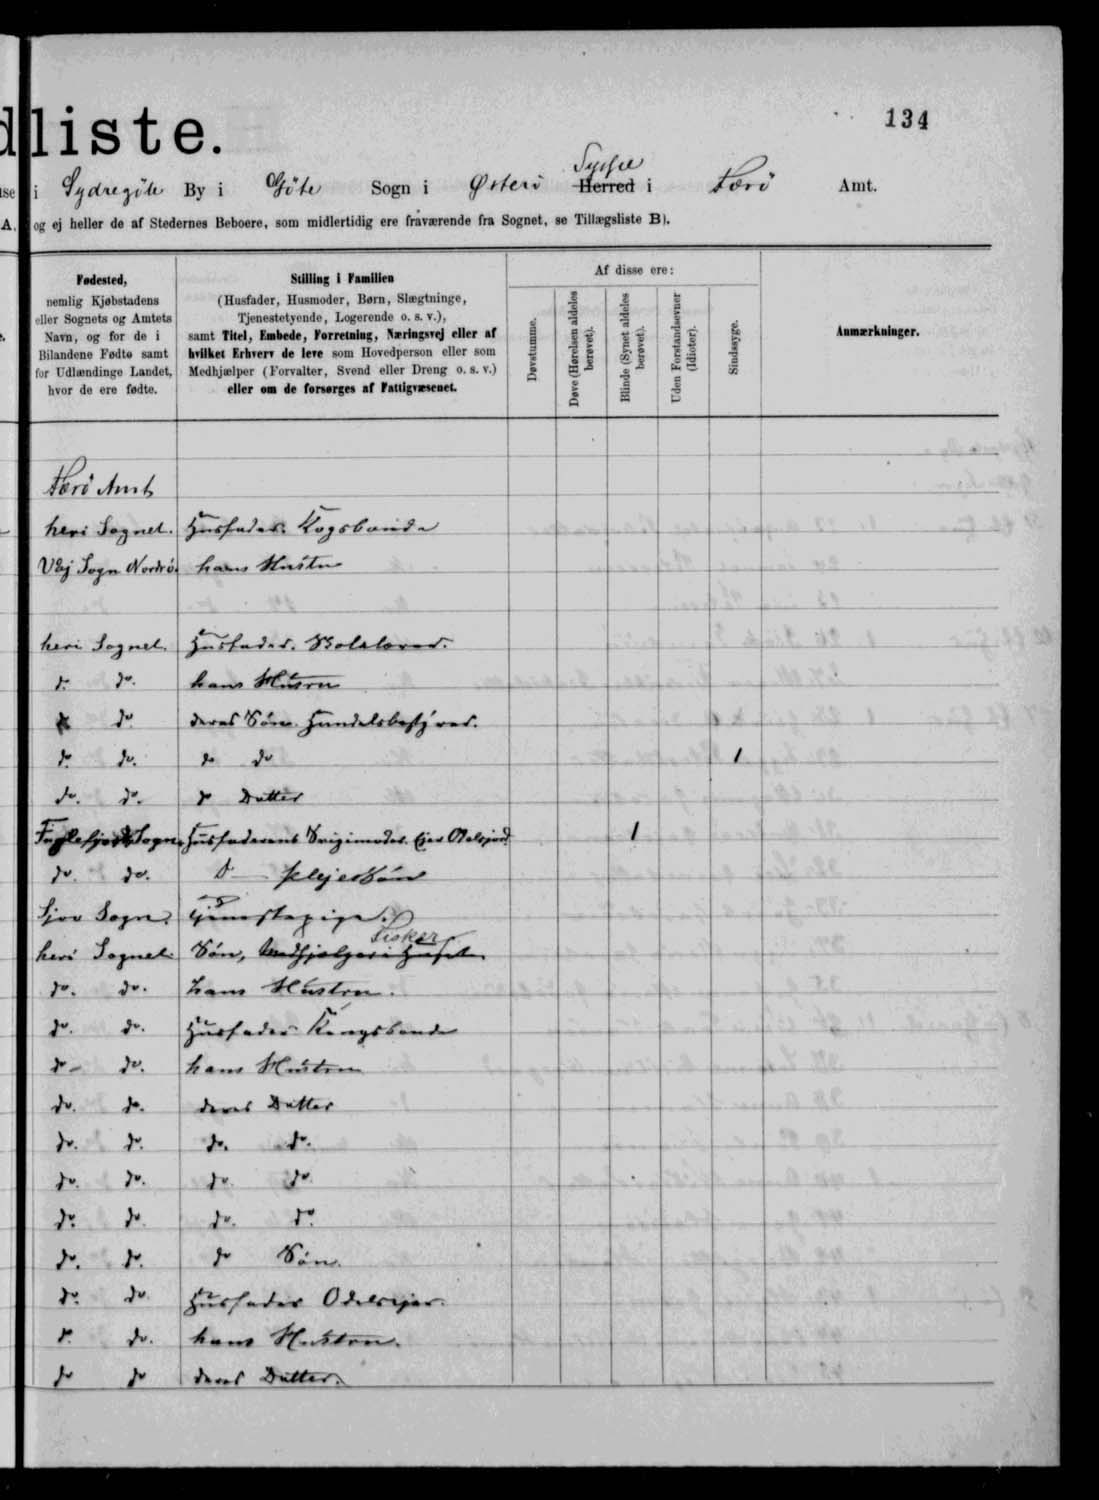 dliste.
134
i Sydregöte By i Göte Sogn i Österö Syssel Herred i Færö Amt.
A. og ej heller de af Stedernes Beboere, som midlertidig ere fraværende fra Sognet, se Tillægsliste B).
Fødested,
nemlig Kjøbstadens
eller Sognets og Amtets
Navn, og for de i
Bilandene Fødte samt
for Udlændinge Landet,
hvor de ere fødte.
Stilling i Familien
(Husfader, Husmoder, Børn, Slægtninge,
Tjenestetyende, Logerende o. s. v.),
samt Titel, Embede, Forretning, Næringsvej eller af
hvilket Erhverv de leve som Hovedperson eller som
Medhjælper (Forvalter, Svend eller Dreng o. s. v.)
eller om de forsørges af Fattigvæsenet.
Af disse ere:
Døvstumme.
Døve (Hørelsen aldeles berøvet).
Blinde (Synet aldeles berøvet).
Uden Forstandsevner (Idioter).
Sindssyge.
Anmærkninger.
Færö Amt
heri Sognet. Husfader.
Sogn Nordrö. hans Hustru
heri Sognet. Husfader.
do. do. hans Hustru
do deres Søn
do. do. do do 1
do. do. do Datter
Sogn. Husfaderens 1
do. do. d Plejesøn
Sogn. Tjenestepige.
Fisker
heri Sognet Søn,
do. do. hans Hustru.
do. do. Husfader Kongsbonde
do do. hans Hustru
do. do. deres Datter
do. do. do. do.
do. do. do. do.
do. do. do. do.
do. do. do Søn.
do. do Husfader Odelsejer.
do. do. hans Hustru.
do do deres Datter.